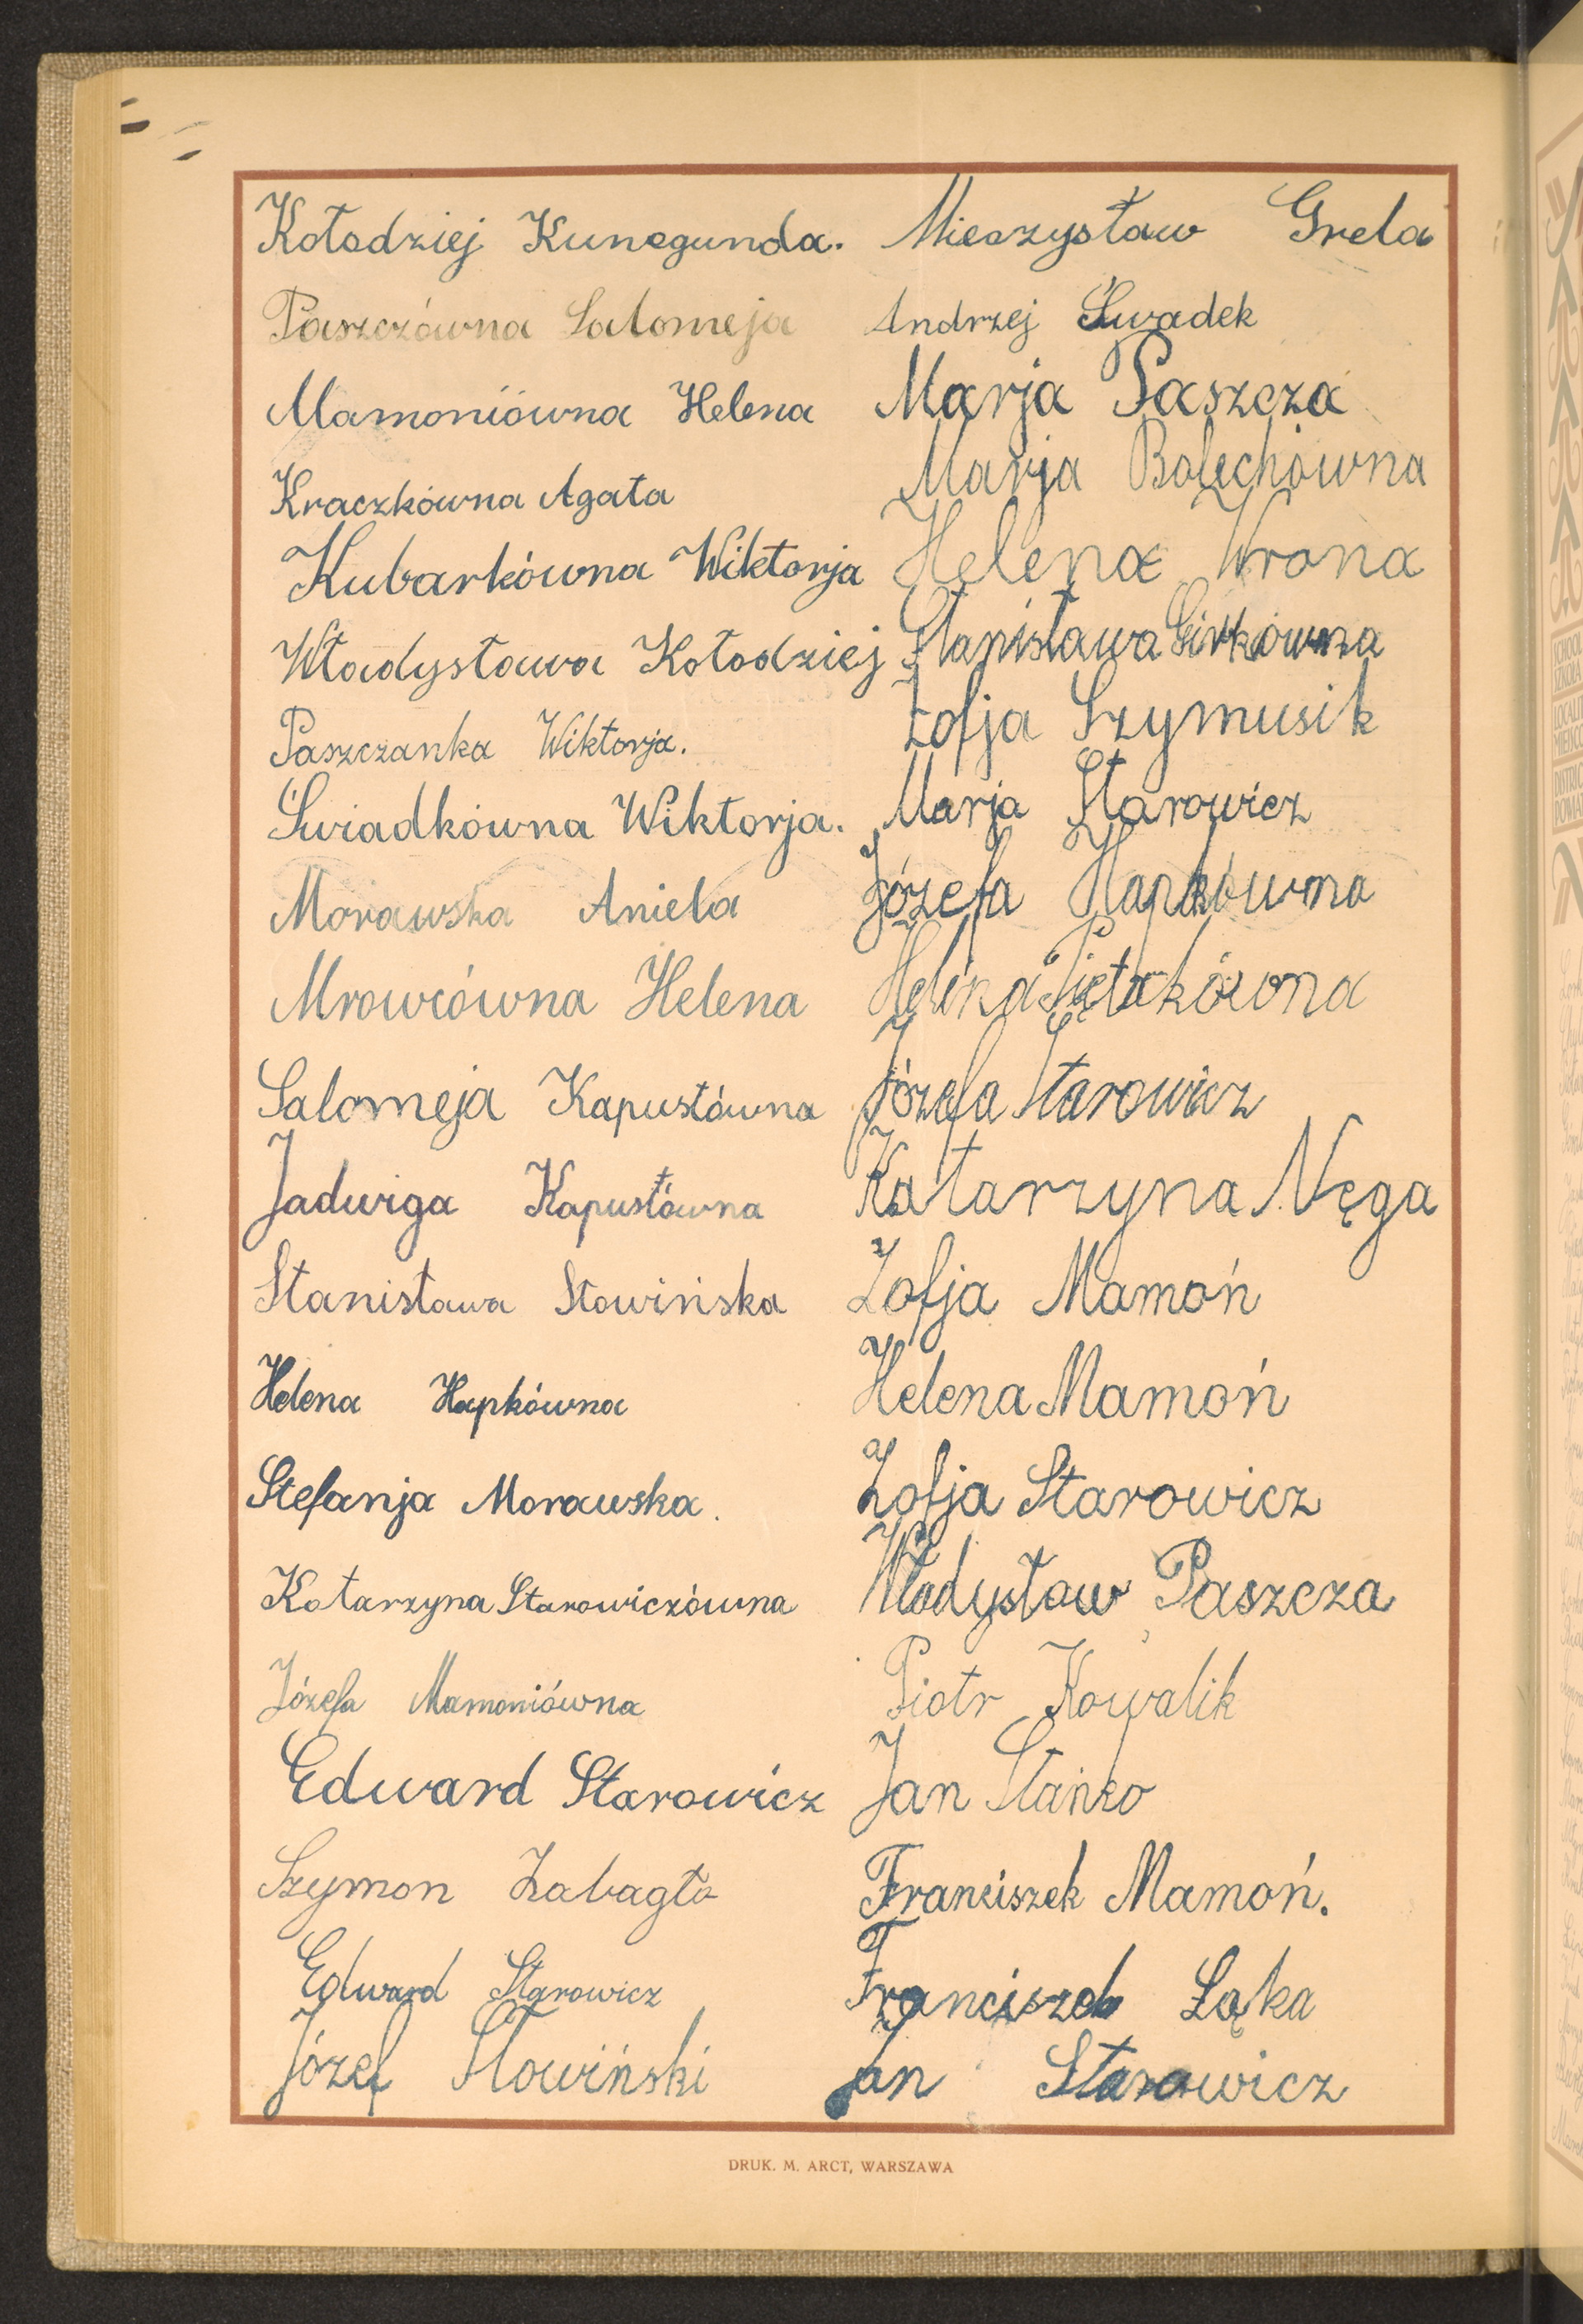 Kołodziej Kunegunda.
Paszczówna Salomeja
Mamoniówna Helena
Kraczkówna Agata
Kubarkówna Wiktorja
Władysława Kołodziej
Paszczanka Wiktorja.
Świadkówna Wiktorja.
Morawska Aniela
Mrowcówna Helena
Salomeja Kapustówna
Jadwiga Kapustówna
Stanisława Słowińska
Helena Hapkówna
Stefanja Morawska.
Katarzyna Starowiczówna
Józefa Mamoniówna
Edward Starowicz
Szymon Żabagło
Edward Starowicz
Józef Słowiński
Mieczysław Grela
Andrzej Śwadek
Marja Paszcza
Marja Bolechówna
Helena Wrona
Stanisława
Zofja Szymusik
Marja Starowicz
Józefa Hapkówna
Helena Piętakówna
Józefa Starowicz
Katarzyna Nęga
Zofja Mamoń
Helena Mamoń
Zofja Starowicz
Władysław Paszcza
Piotr Kowalik
Jan Stańko
Franciszek Mamoń.
Franciszek Łąka
Jan Starowicz
DRUK. M. ARCT, WARSZAWA